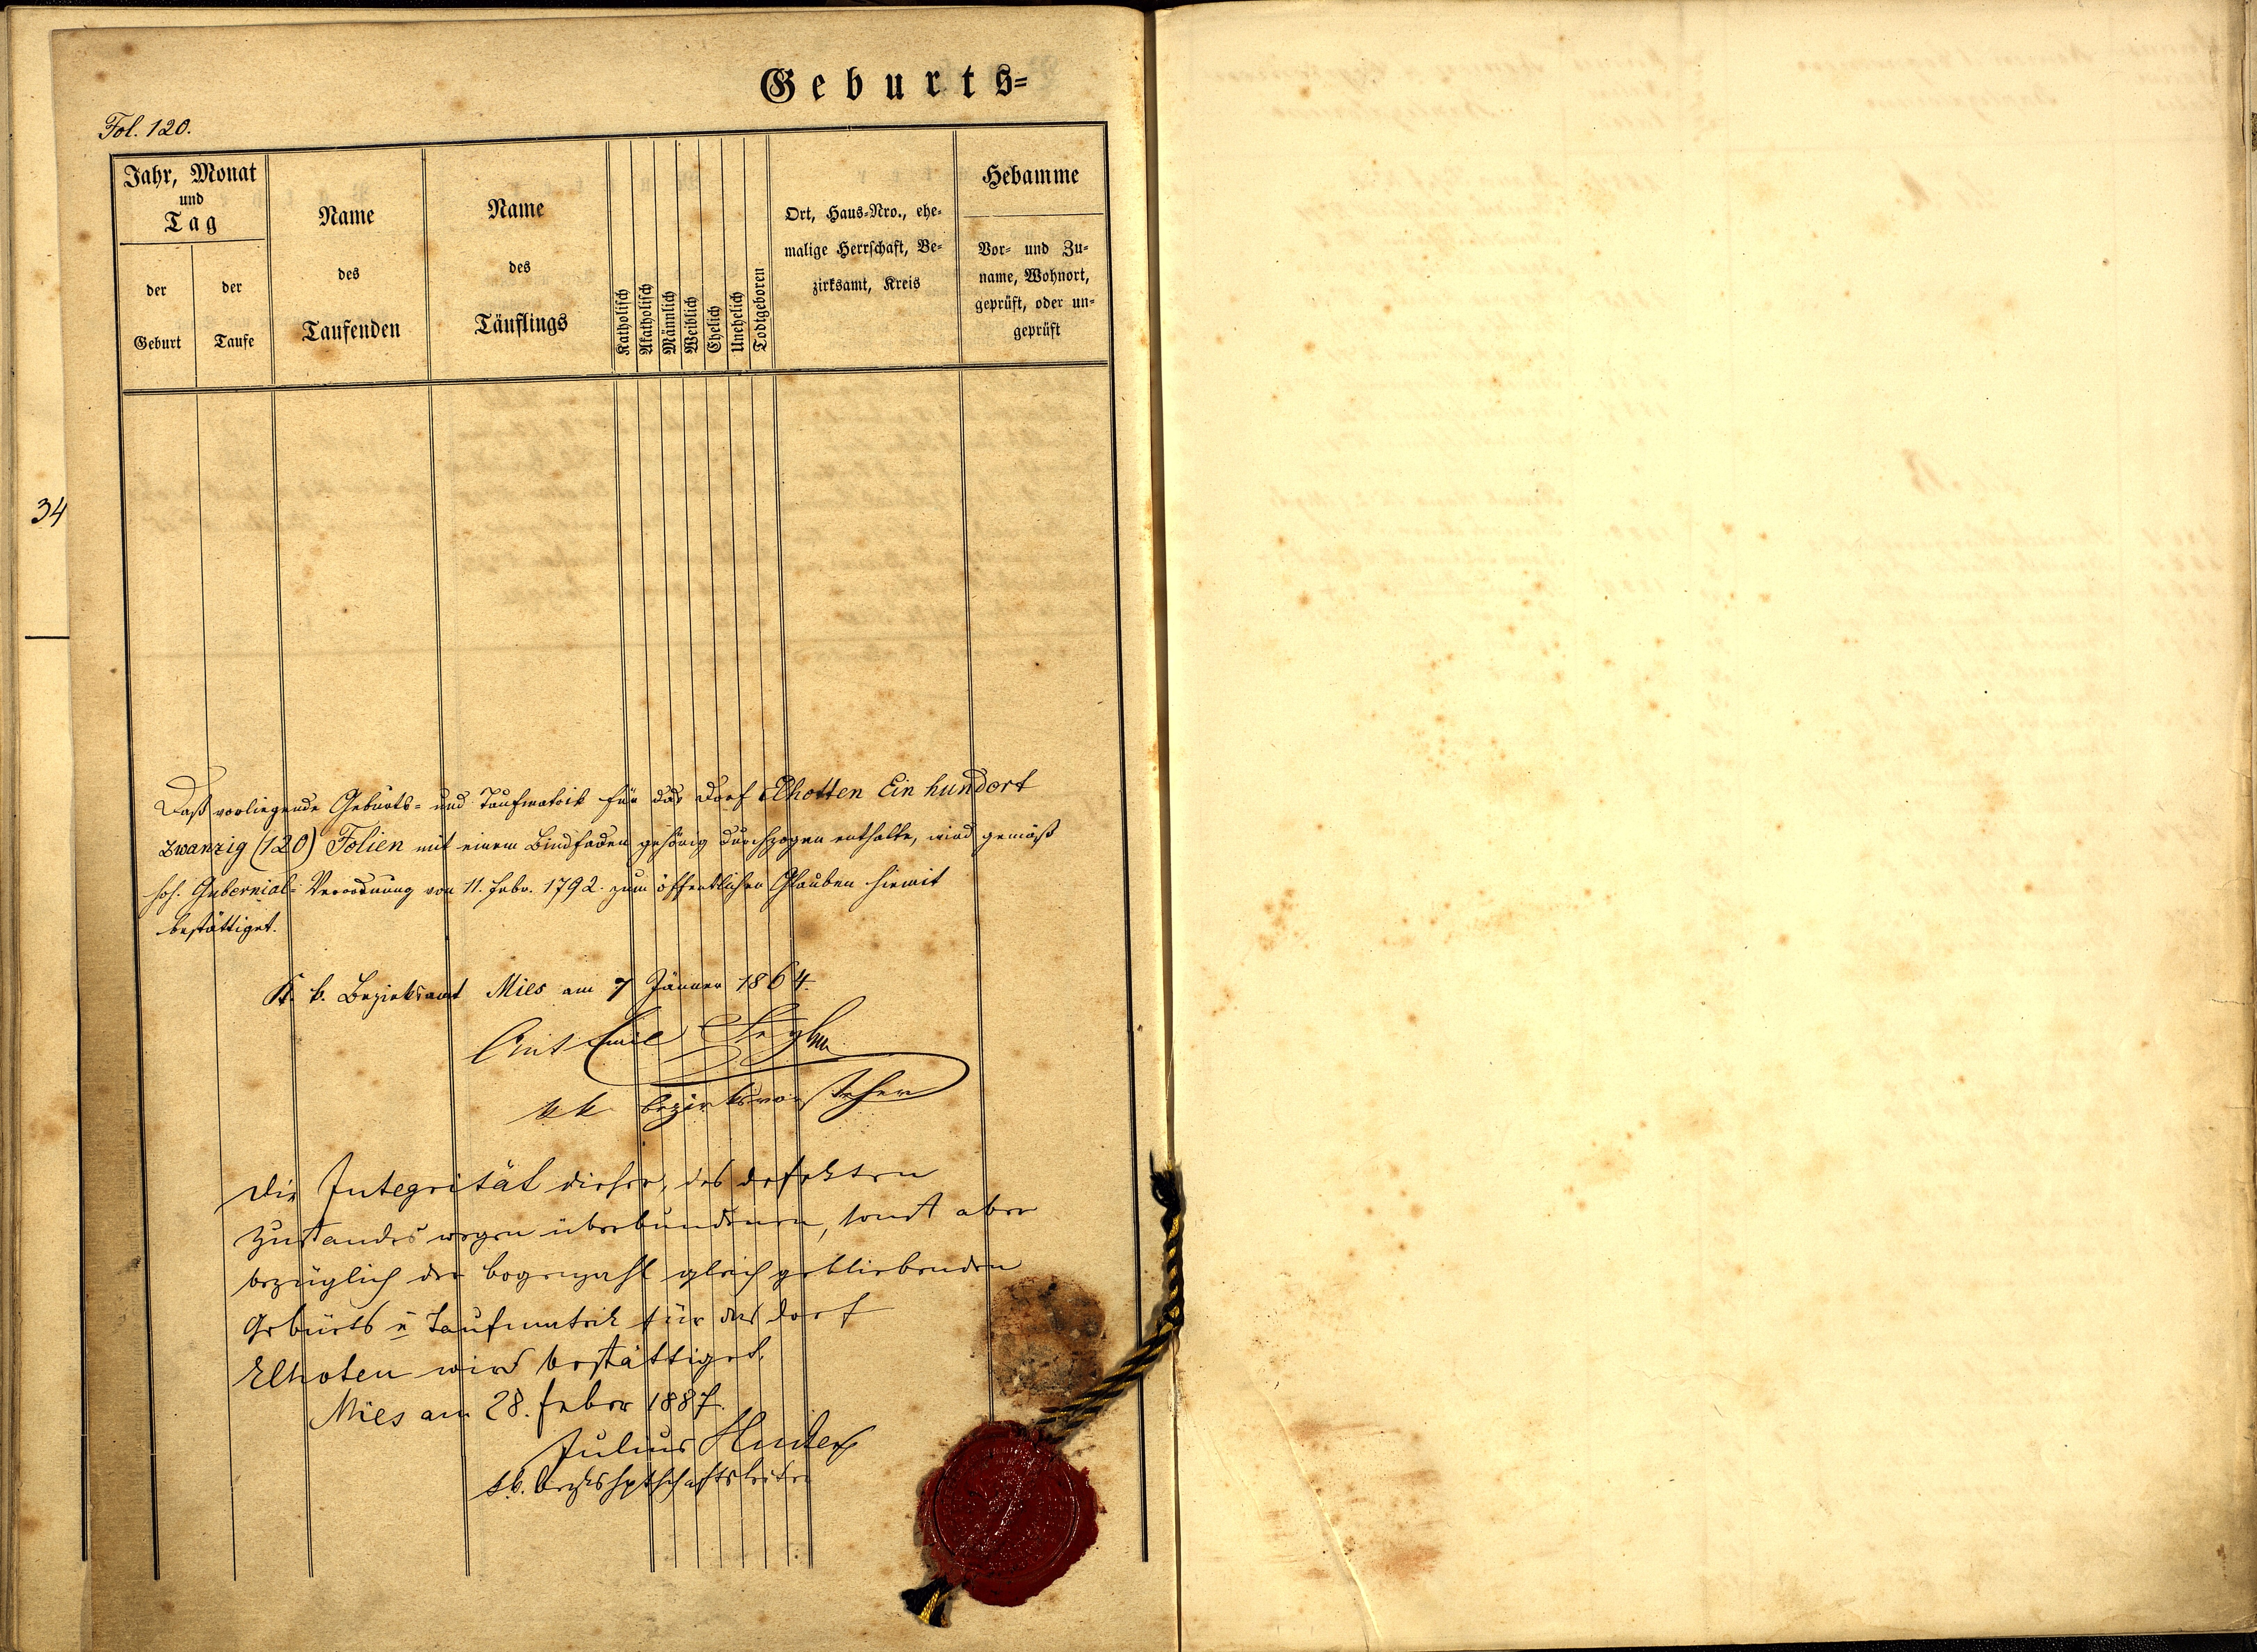 Geburts=
Fol. 120.
Jahr, Monat
und
Tag
der
Geburt
der
Taufe
Name
des
Taufenden
Name
des
Täuflings
Katholisch
Akatholisch
Männlich
Weiblich
Ehelich
Unehelich
Todtgeboren
Ort, Haus=Nro., ehe=
malige Herrschaft, Be=
zirksamt, Kreis
Hebamme
Vor= und Zu=
name, Wohnort,
geprüft, oder un=
geprüft
34
Daß vorliegende Geburts= und Taufmatrik für das Dorf Elhotten Ein hundert
zwanzig (120) Folien mit einem Bindfaden gehörig durchzogen enthalte, wird gemäß
hoh. Gubernial= Verordnung von 11. Febr. 1792. zum öffentlichen Glauben hiemit
bestättiget.
K. k. Bezirksamt Mies am 7 Jänner 1864.
Emil
kk Bezirksvorsteher
Die Integrität dieser, des defekten
Zustandes wegen überbundenen, sonst aber
bezüglich der Bogenzahl gleich gebliebenden
Geburts u Taufmatrik für das Dorf
Elhoten wird bestättiget.
Mies am 28. Feber 1887.
Julius
k.k. Bezkshptschaftsleiter